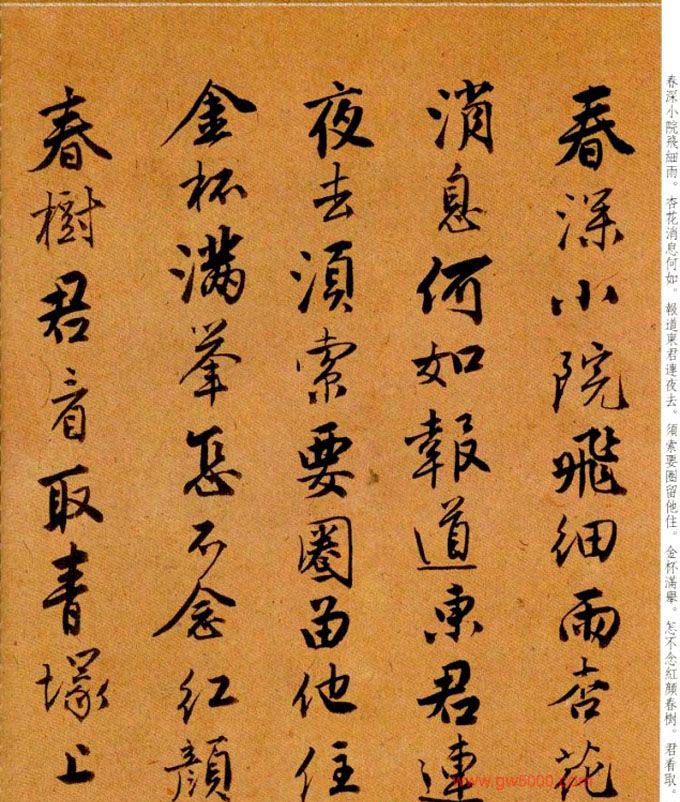 春深小院飛細雨。杏花消息何如。報道東君連夜去。須索要圈留他住。金杯滿擧。怎不念紅顏春樹。君看取。
春深小院飛細雨杏花
消息何如報道東君連
夜去須索要圈留他住
金杯滿擧怎不念紅顏
春樹君看取青塚上
www.gw5000.com